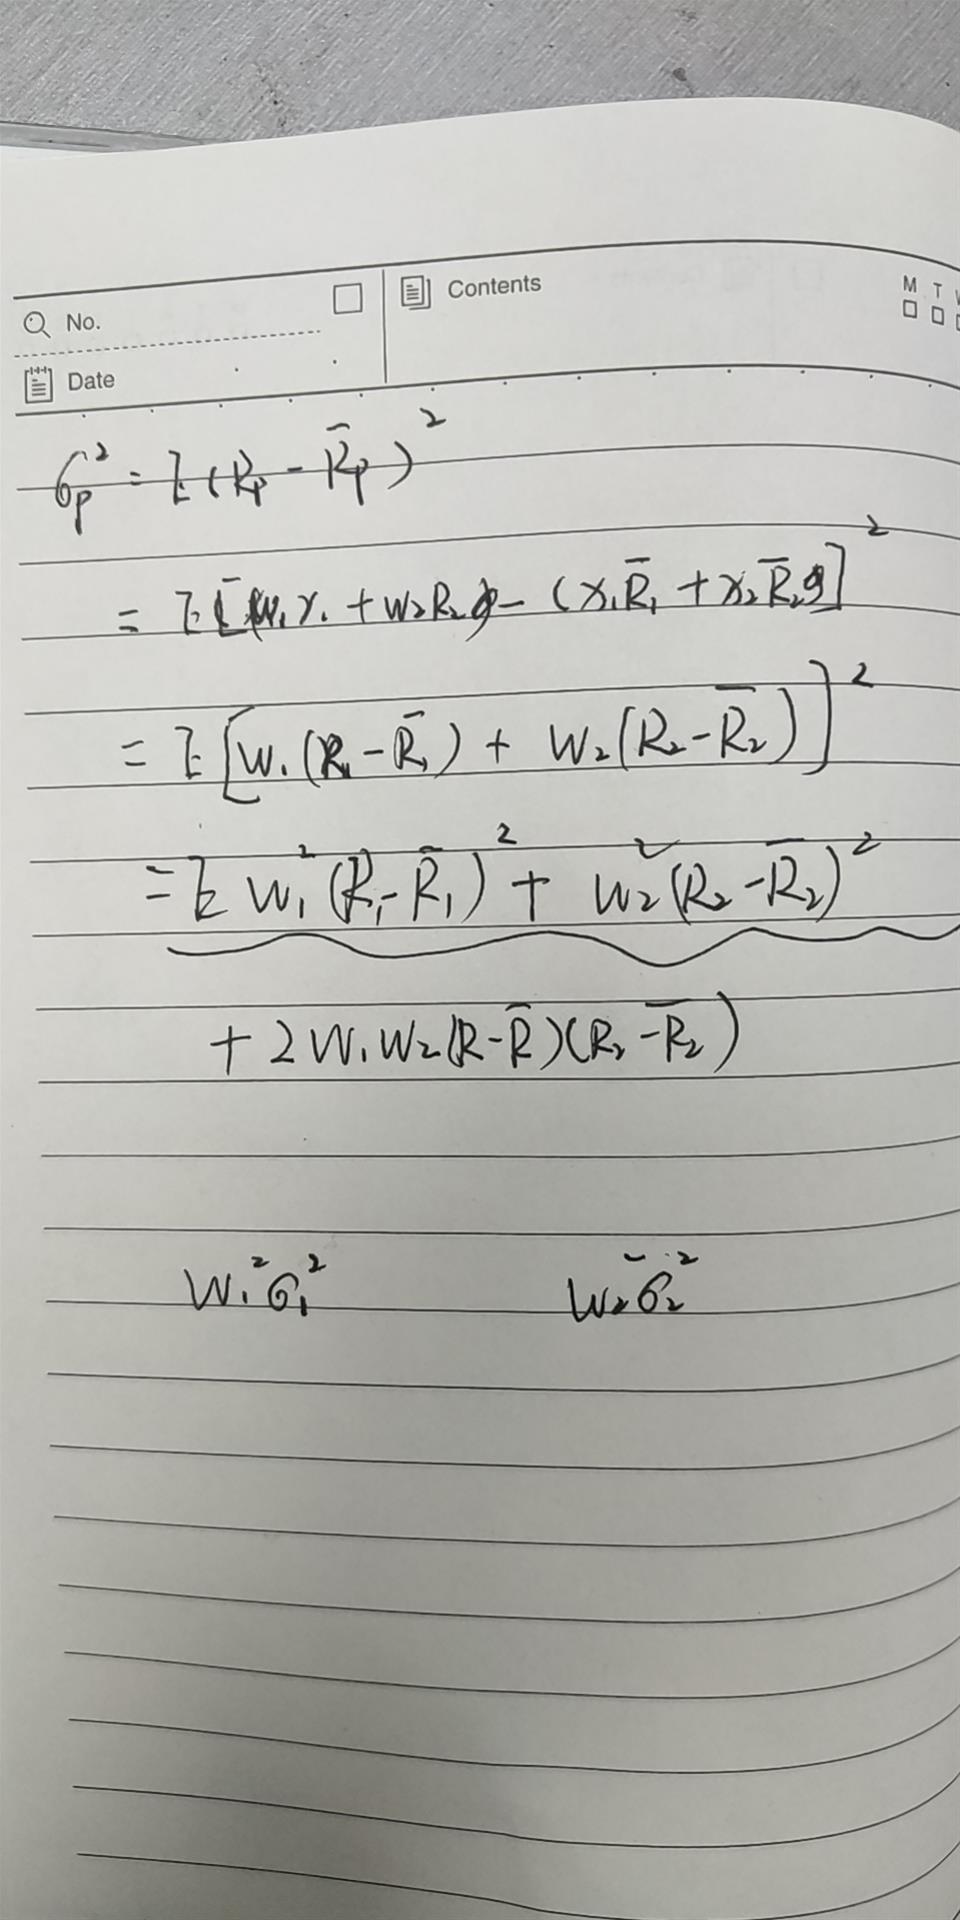 No.
Contents
M T
Date
σp² = E(Rp - R̄p)²
= E[(w₁x₁ + w₂R₂) - (x₁R̄₁ + x₂R̄₂)]²
= E[W₁(R₁ - R̄₁) + W₂(R₂ - R̄₂)]²
= E W₁²(R₁ - R̄₁)² + W₂²(R₂ - R̄₂)²
+ 2W₁W₂(R - R̄)(R₂ - R̄₂)
W₁²σ₁² W₂²σ₂²